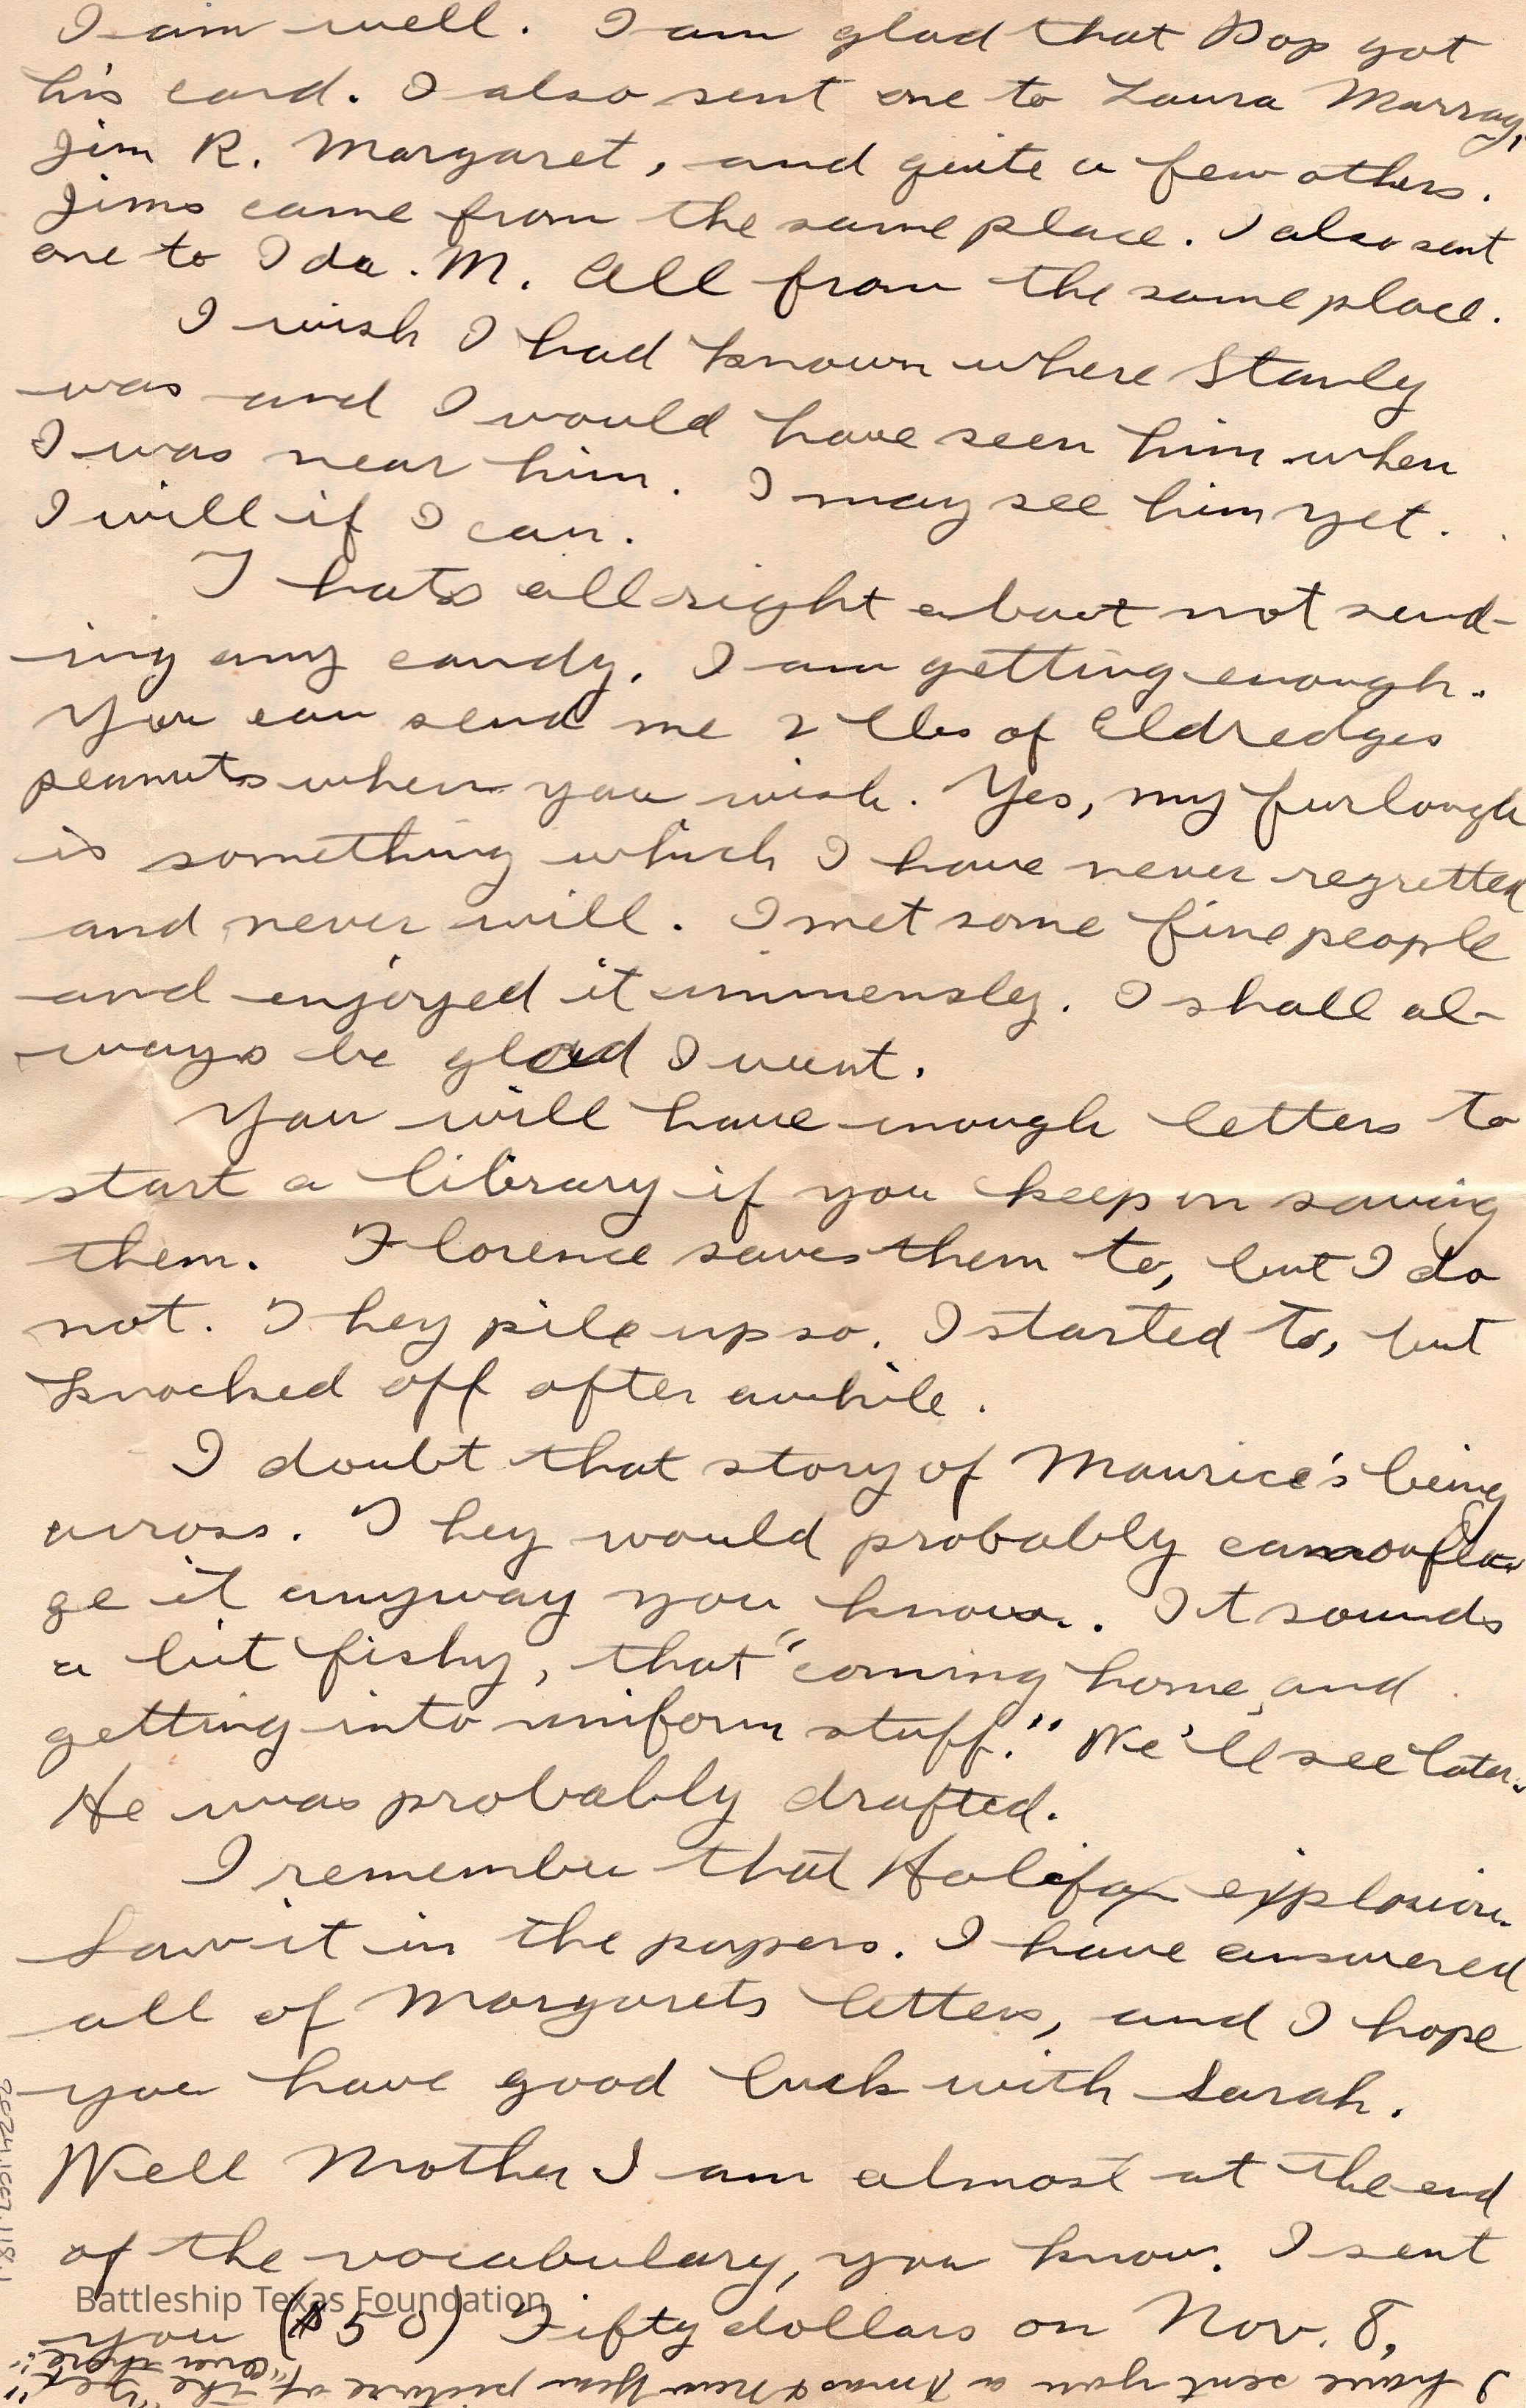 I am well. I am glad that Pop got
his card. I also sent one to Laura Murray,
Jim R. Margaret, and quite a few others.
Jims came from the same place. I also sent
one to Ida. M. All from the same place.
I wish I had known where Stanly
was and I would have seen him when
I was near him. I may see him yet.
I will if I can.
Thats all right about not send-
ing any candy. I am getting enough.
You can send me 2 lbs of Eldredges
peanuts when you wish. Yes, my furlough
is something which I have never regretted
and never will. I met some fine people
and enjoyed it immensly. I shall al-
ways be glad I went.
You will have enough letters to
start a library if you keep on saving
them. Florence saves them to, but I do
not. They pile up so. I started to, but
knocked off after awhile.
I doubt that story of Maurice's being
across. They would probably camoufla
ge it anyway you know. It sounds
a bit fishy, that "coming home and
getting into uniform stuff." We'll see later.
He was probably drafted.
I remember that Halifax explosion
Saw it in the papers. I have answered
all of Margarets letters, and I hope
you have good luck with Sarah.
Well Mother I am almost at the end
of the vocabulary, you know. I sent
you ($50) Fifty dollars on Nov. 8,
I have sent you a Xmas & New Year picture of the "Tex"
"over there"
Battleship Texas Foundation